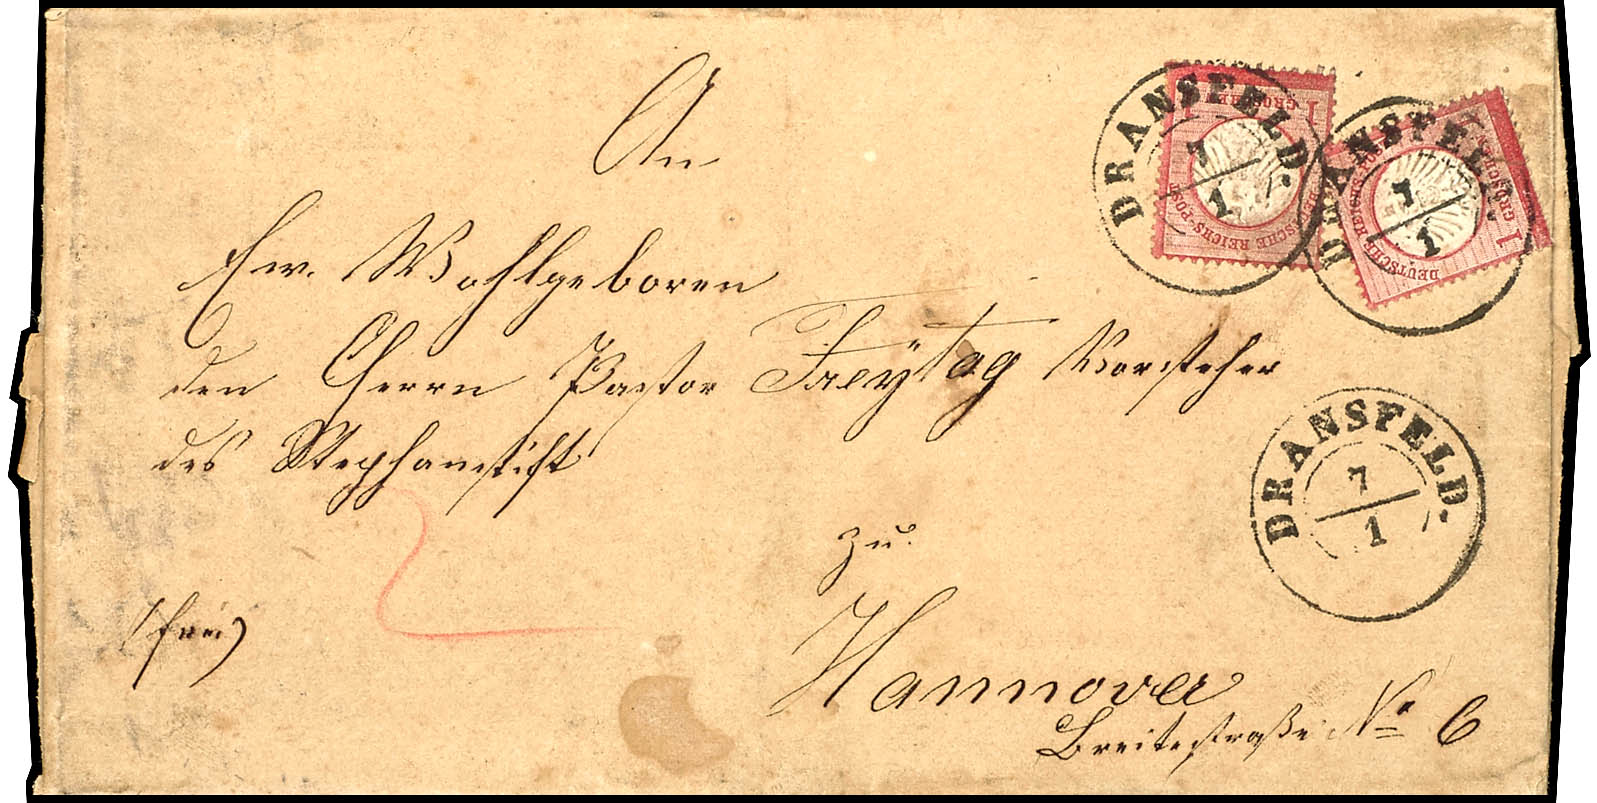 An
Ew. Wohlgeboren
den Herrn Pastor Freytag Vorsteher
des Stephanstift
zu
Hannover
Breitestraße No 6
(frei)
2
DRANSFELD.
7
1
DRANSFELD.
7
1
DRANSFELD.
7
1
1
GROSCHEN
DEUTSCHE REICHS-POST
1
GROSCHEN
DEUTSCHE REICHS-POST